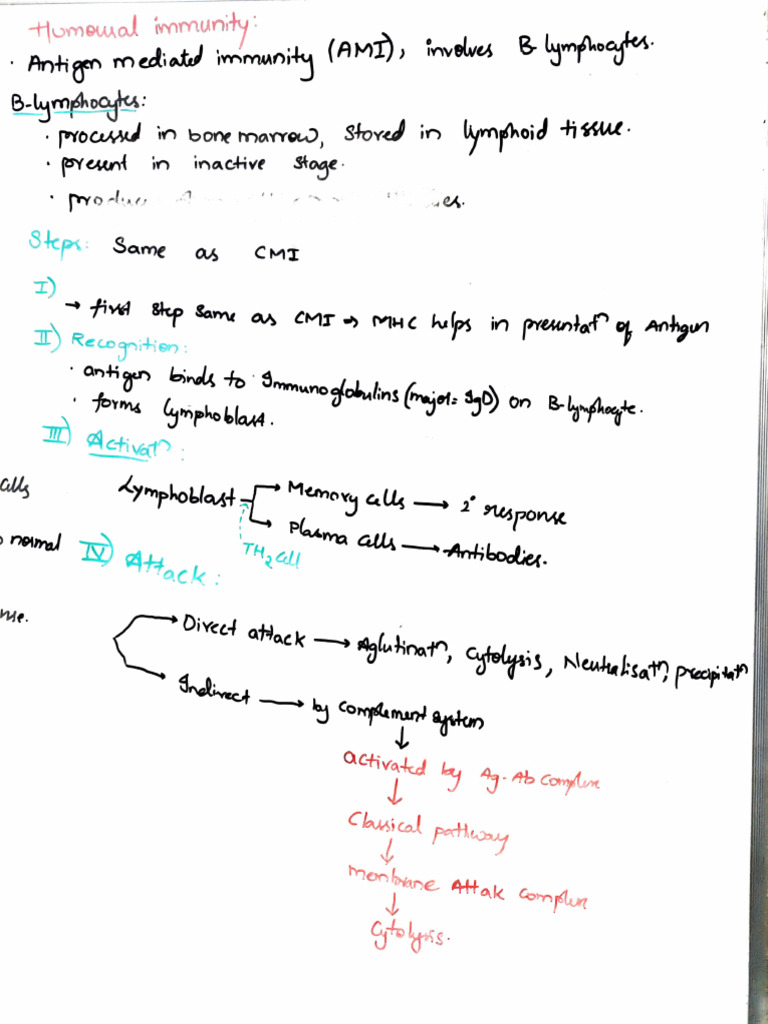 Humoural immunity:
· Antigen mediated immunity (AMI), involves B lymphocytes.
B-lymphocytes:
· processed in bone marrow, stored in lymphoid tissue.
· present in inactive stage.
· produc
Steps: Same as CMI
I)
→ first step same as CMI → MHC helps in presentatⁿ of Antigen
II) Recognition:
· antigen binds to Immunoglobulins (major = IgD) on B-lymphocyte.
· forms lymphoblast.
III) Activatⁿ:
calls
Lymphoblast → Memory cells → 2° response
→ Plasma cells → Antibodies.
TH2 cell
normal
IV) Attack:
nse.
→ Direct attack → Aglutinatⁿ, Cytolysis, Neutralisatⁿ, precipitatⁿ
→ Indirect → by complement system
↓
activated by Ag-Ab complex
↓
Classical pathway
↓
menbrane Attak complex
↓
Cytolysis.